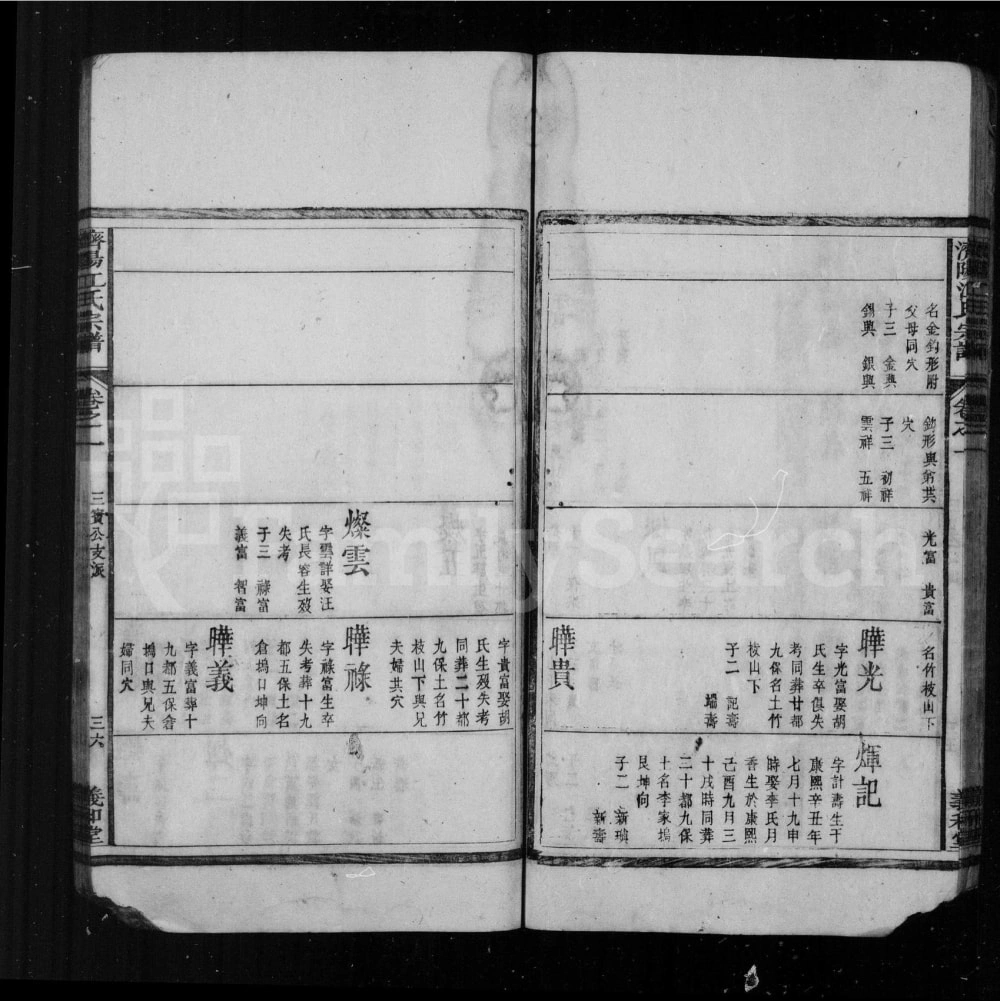 濟陽江氏宗譜
卷之一
義和堂
名金鈎形附
父母同穴
子三 金興
錫興 銀興
鈎形與弟共
穴
子三 初祥
雲祥 五祥
光富 貴富
名竹枝山下
曄光
字光富娶胡
氏生卒俱失
考同葬廿都
九保名土竹
枝山下
子二 記壽
端壽
曄貴
煇記
字計壽生于
康熙辛丑年
七月十九申
時娶李氏月
香生於康熙
己酉九月三
十戌時同葬
二十都九保
土名李家塢
艮坤向
子二 新璊
新壽
燦雲
字雲詳娶汪
氏長容生歿
失考
子三 祿富
義富 智富
字貴富娶胡
氏生歿失考
同葬二十都
九保土名竹
枝山下與兄
夫婦共穴
曄祿
字祿富生卒
失考葬十九
都五保土名
倉塢口坤向
曄義
字義富葬十
九都五保倉
塢口與兄夫
婦同穴
濟陽江氏宗譜
卷之一
三寳公支派
三六
義和堂
FamilySearch